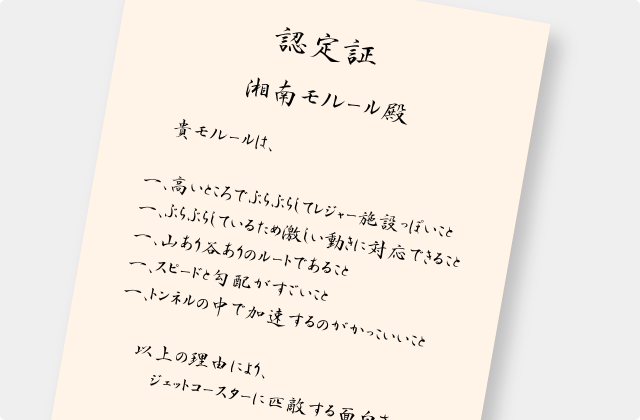 認定証
湘南モルール殿
貴モルールは、
一、高いところでぶらぶらしてレジャー施設っぽいこと
一、ぶらぶらしているため激しい動きに対応できること
一、山あり谷ありのルートであること
一、スピードと勾配がすごいこと
一、トンネルの中で加速するのがかっこいいこと
以上の理由により、
ジェットコースターに匹敵する面白